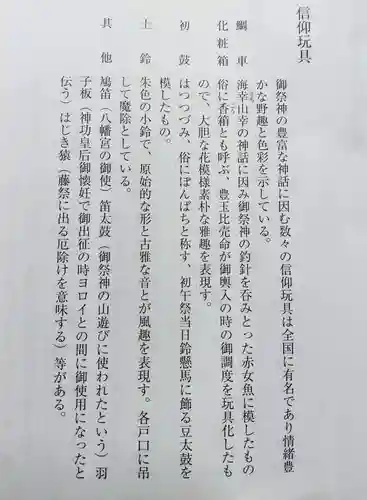 信仰玩具
御祭神の豊富な神話に因む数々の信仰玩具は全国に有名であり情緒豊
かな野趣と色彩を示している。
鯛車 海幸山幸の神話に因み御祭神の釣針を呑みとった赤女魚に模したもの
化粧箱 俗に香箱とも呼ぶ、豊玉比売命が御輿入の時の御調度を玩具化したも
ので、大胆な花模様素朴な雅趣を表現す。
初鼓 はつつづみ、俗にぽんぱちと称す、初午祭当日鈴懸馬に飾る豆太鼓を
模したもの。
土鈴 朱色の小鈴で、原始的な形と古雅な音とが風趣を表現す。各戸口に吊
して魔除としている。
其他 鳩笛（八幡宮の御使）笛太鼓（御祭神の山遊びに使われたという）羽
子板（神功皇后御懐妊で御出征の時ヨロイとの間に御使用になったと
伝う）はじき猿（藤祭に出る厄除けを意味する）等がある。